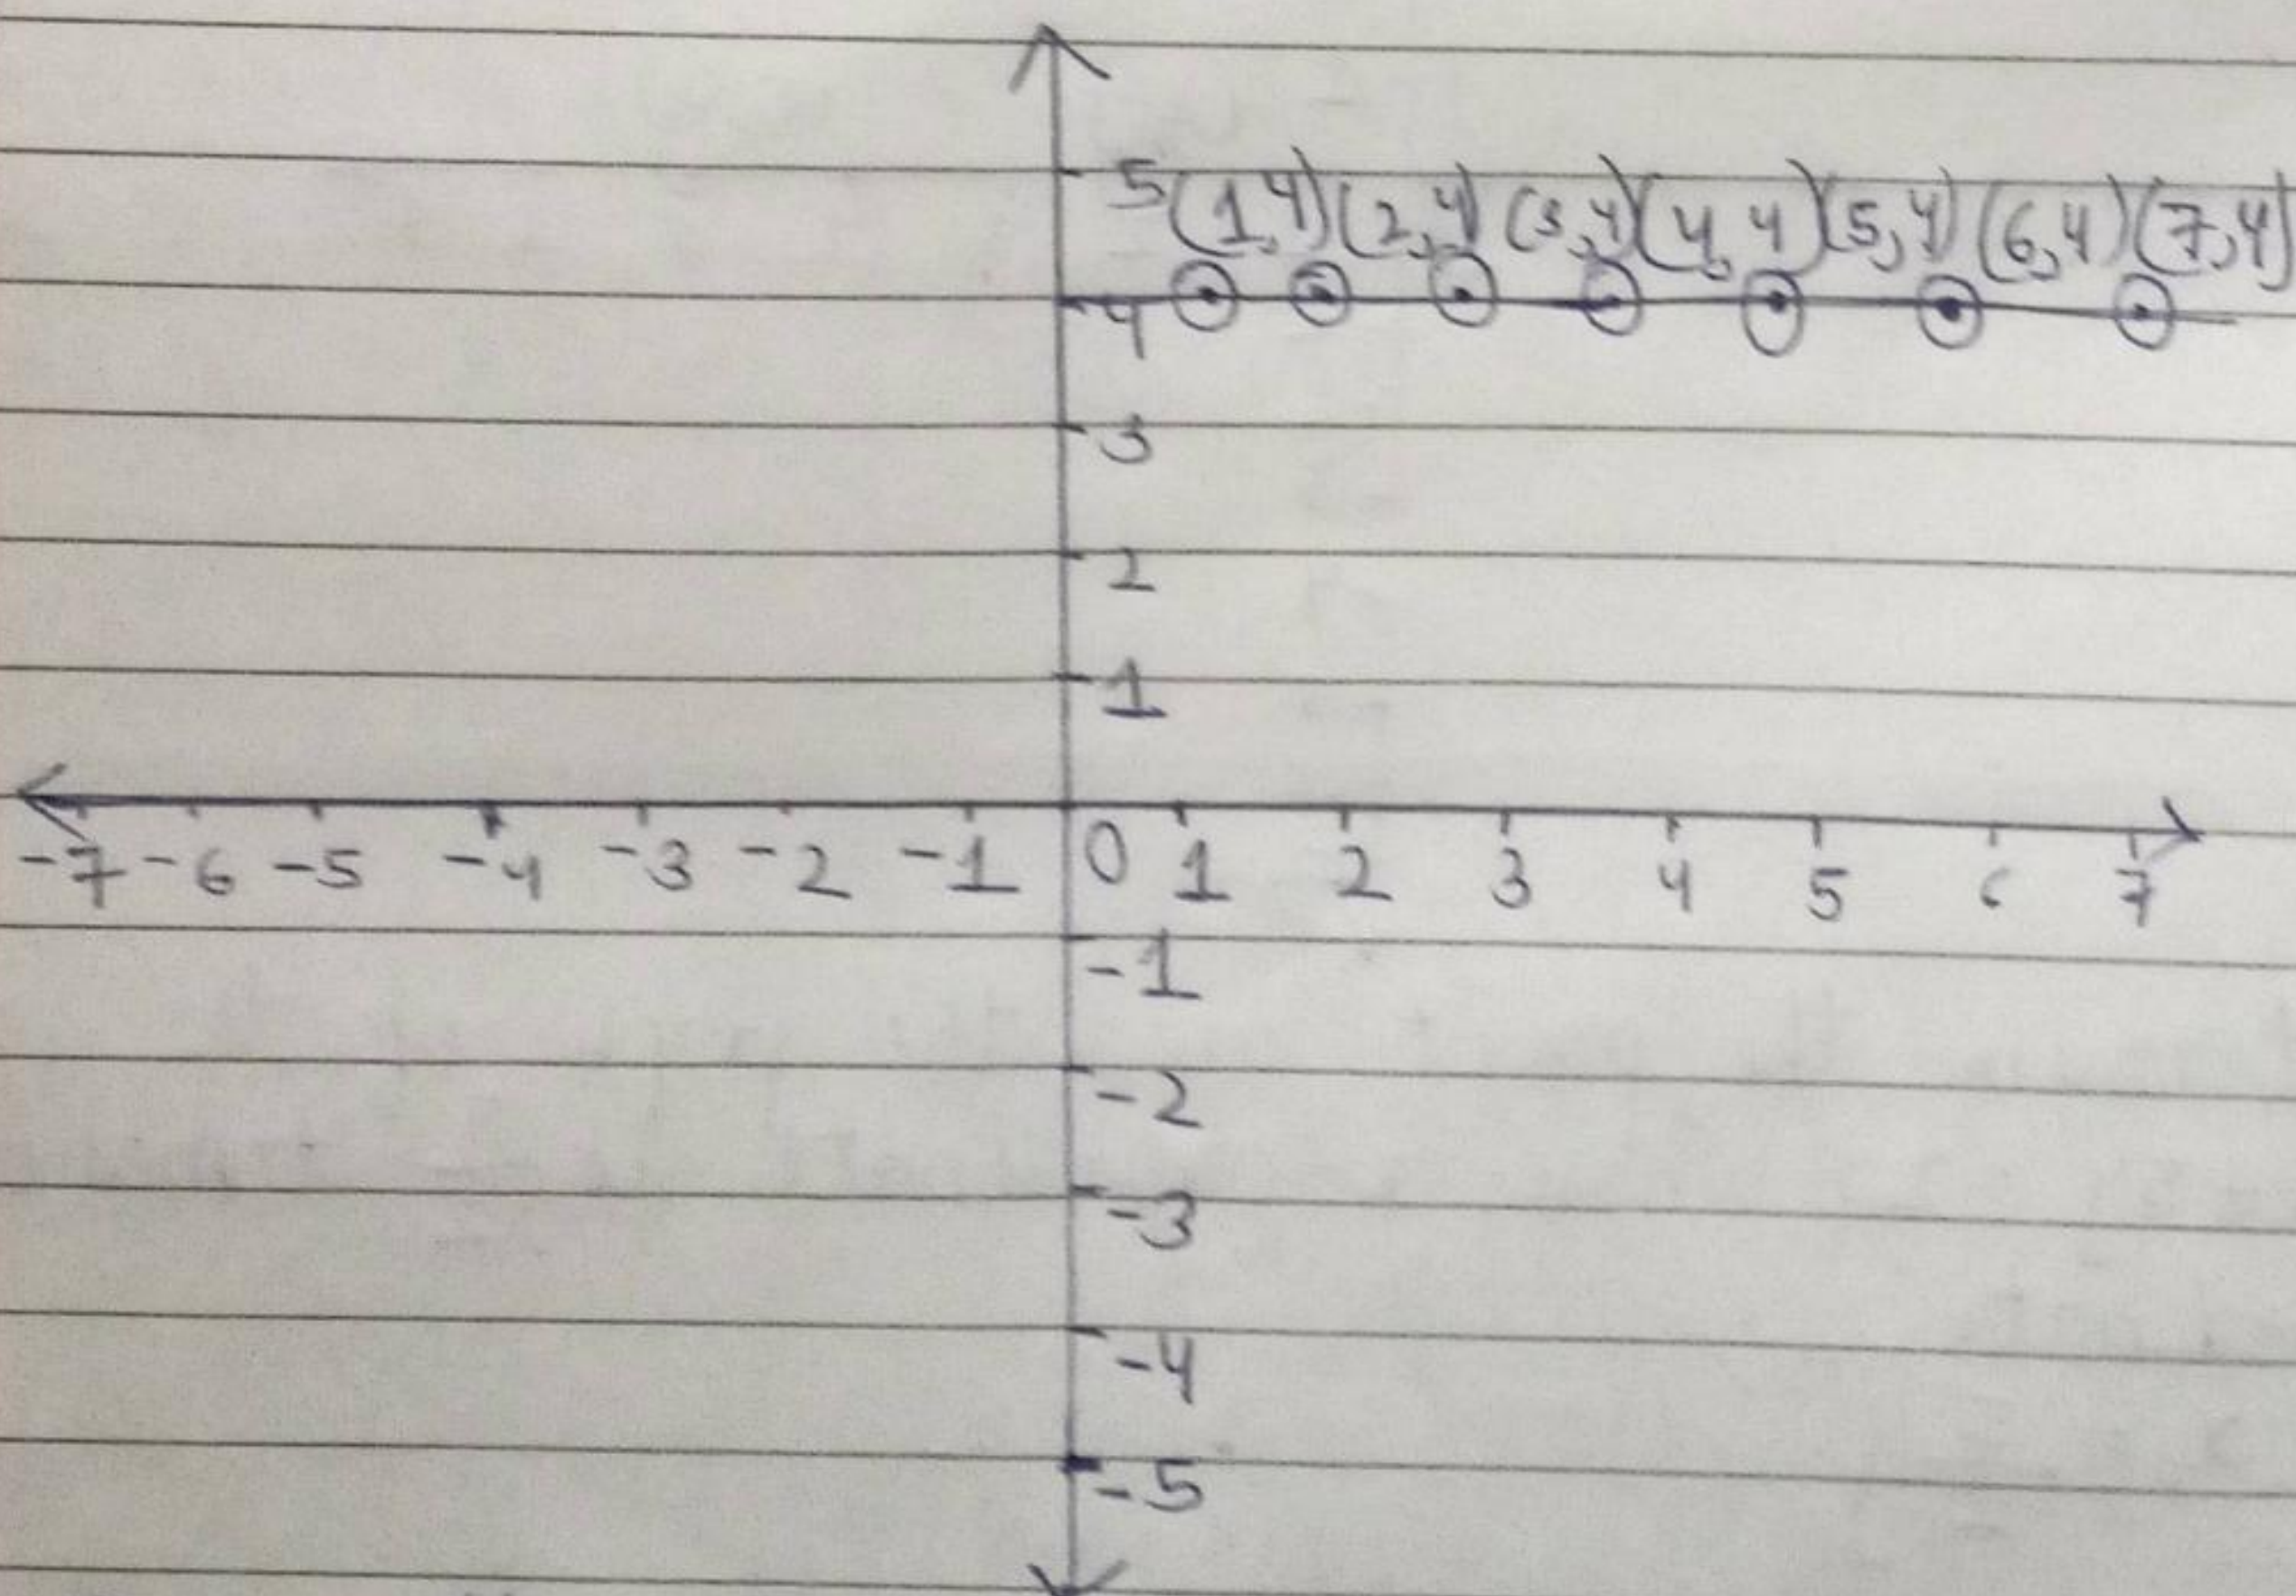 5 (1,4) (2,4) (3,4) (4,4) (5,4) (6,4) (7,4)
4
3
2
1
-7 -6 -5 -4 -3 -2 -1 0 1 2 3 4 5 6 7
-1
-2
-3
-4
-5